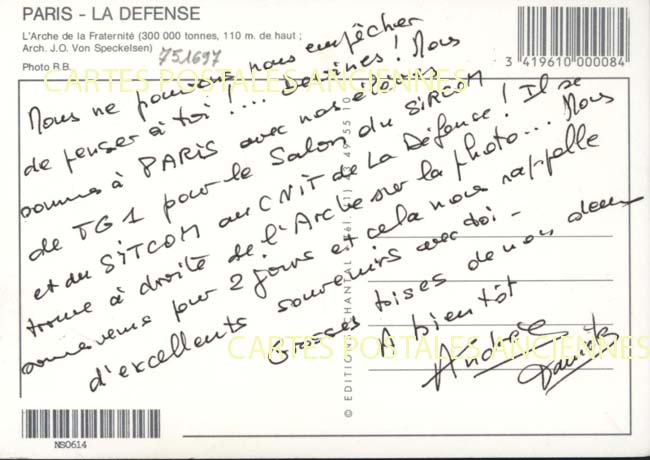 PARIS - LA DEFENSE
L'Arche de la Fraternité (300 000 tonnes, 110 m. de haut ;
Arch. J.O. Von Speckelsen)
751697
Photo R.B.
3 419610 000084
CARTES POSTALES ANCIENNES
Nous ne pouvons nous empêcher
de penser à toi !... Devines ! Nous
sommes à PARIS avec nos élèves
de TG1 pour le Salon du SIRCOM
et du SITCOM au CNIT de La Défense ! Il se
trouve à droite de l'Arche sur la photo... Nous
sommes pour 2 jours et cela nous rappelle
d'excellents souvenirs avec toi -
Grosses bises de nous deux
A bientôt
Andrée
© EDITIONS CHANTAL
49 55 10
CARTES POSTALES ANCIENNES
NS0614